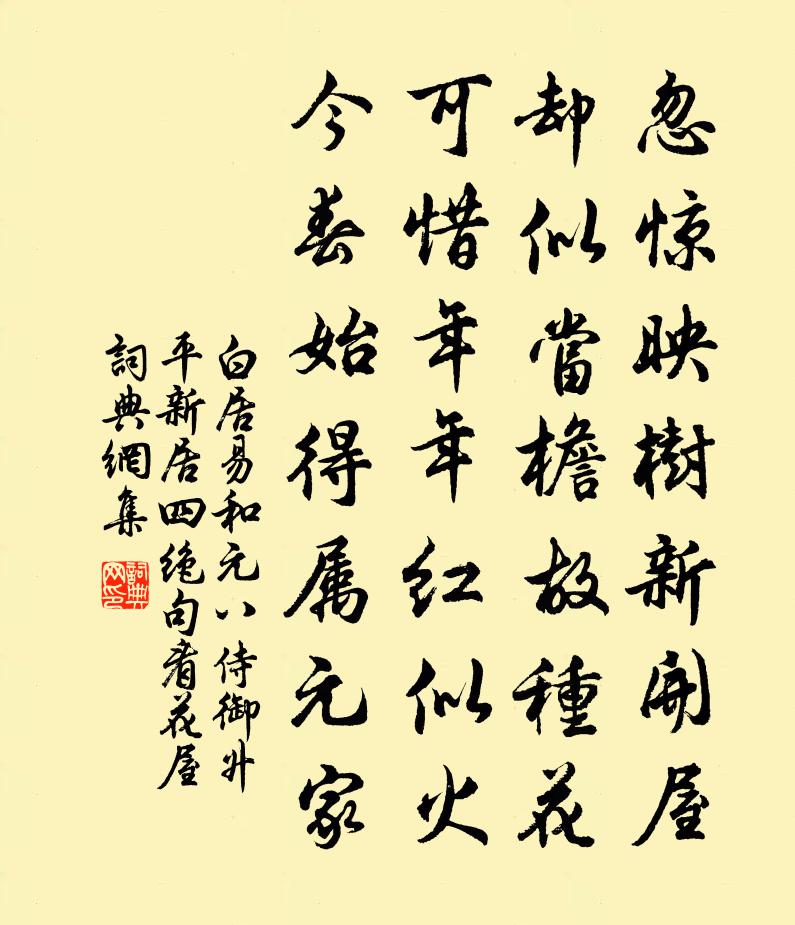 忽惊映樹新開屋
却似當檐故種花
可惜年年红似火
今春始得属元家
白居易和元八侍御升
平新居四绝句看花屋
詞典網集
詞典网印